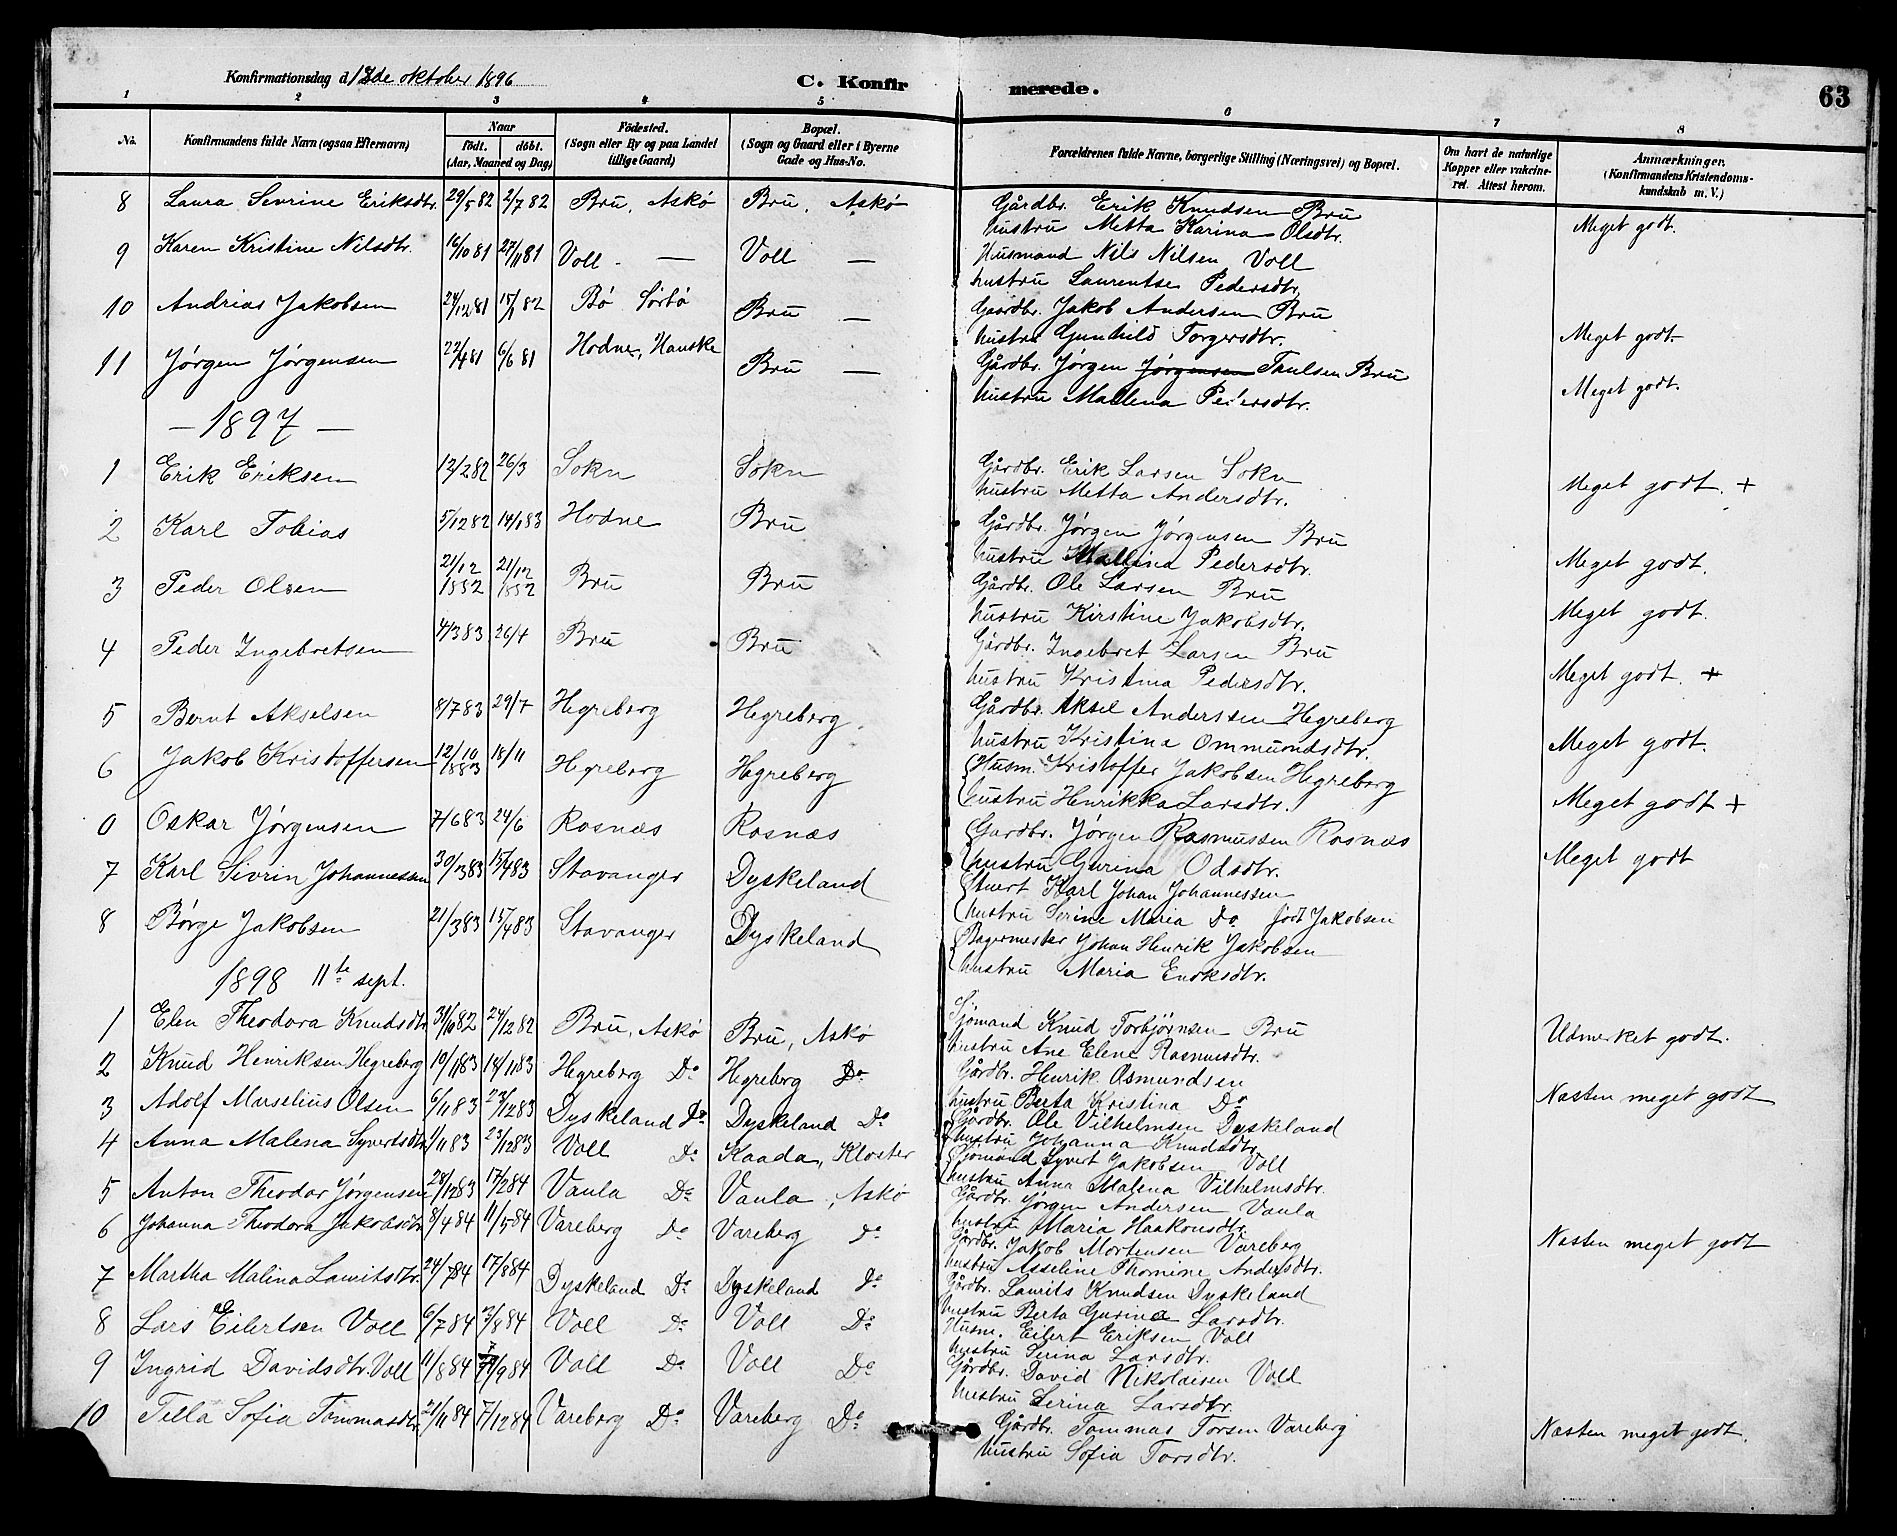 Konfirmationsdag d. 12de oktober 1896 C. Konfirmerede. 63
1 2 3 4 5 6 7 8
No. Konfirmandens fulde Navn (ogsaa Efternavn) Naar födt. döbt. (Aar, Maaned og Dag) Födested. (Sogn eller By og paa Landet tillige Gaard) Bopæl. (Sogn og Gaard eller i Byerne Gade og Hus-No. Forældrenes fulde Navne, borgerlige Stilling (Næringsvei) og Bopæl. Om havt de naturlige Kopper eller vakcineret. Attest herom. Anmærkninger. (Konfirmandens Kristendomskundskab m. V.)
8 Laura Sevrine Eriksdtr. 29/5 82 2/7 82 Bru, Askø Bru, Askø Gårdbr. Erik Knudsen Bru
hustru Metta Karina Olsdtr. Meget godt.
9 Karen Kristine Nilsdtr. 16/10 81 27/11 81 Voll — Voll — Husmand Nils Nilsen Voll
hustru Laurentse Pedersdtr.
10 Andrias Jakobsen 24/12 81 15/1 82 Bø Sörbö Bru — Gaardbr. Jakob Andersen Bru
hustru Gunhild Torgersdtr. Meget godt.
11 Jørgen Jørgensen 22/4 81 6/6 81 Hodne, Hauske Bru — Gårdbr. Jørgen Jørgensen Thulsen Bru
hustru Mallena Pedersdtr. Meget godt.
— 1897 —
1 Erik Eriksen 12/2 82 26/3 Sokn Sokn Gårdbr. Erik Larsen Sokn
hustru Metta Andersdtr. Meget godt. +
2 Karl Tobias 5/12 82 14/1 83 Hodne Bru Gårdbr. Jørgen Jørgensen Bru
hustru Mallina Pedersdtr. Meget godt.
3 Peder Olsen 21/12 1882 21/12 1882 Bru Bru Gårdbr. Ole Larsen Bru
hustru Kirstine Jakobsdtr. Meget godt.
4 Peder Ingebretsen 4/3 83 26/4 Bru Bru Gårdbr. Ingebret Larsen Bru
hustru Kristina Pedersdtr. Meget godt. +
5 Bernt Akselsen 8/7 83 29/7 Hegreberg Hegreberg Gårdbr. Aksel Anderssen Hegreberg
hustru Kristina Ommundsdtr. Meget godt.
6 Jakob Kristoffersen 12/10 1883 18/11 Hegreberg Hegreberg Husm. Kristoffer Jakobsen Hegreberg
hustru Henrikka Larsdtr. Meget godt +
0 Oskar Jørgensen 7/6 83 24/6 Rosnæs Rosnæs Gardbr. Jørgen Rasmussen Rosnæs
hustru Gurina Odsdtr. Meget godt
7 Karl Sivrin Johannessen 30/3 83 15/4 83 Stavanger Dyskeland Karl Johan Johannessen
hustru Serine Maria Do. født Jakobsen
8 Børge Jakobsen 21/3 83 15/4 83 Stavanger Dyskeland Bagermester Johan Henrik Jakobsen
hustru Maria Enoksdtr.
1898 11te sept.
1 Elen Theodora Knudsdtr 31/10 82 24/12 82 Bru, Askø Bru, Askø Sjömand Knud Torbjørnsen Bru
hustru Ane Elene Rasmusdtr. Udmerket godt.
2 Knud Henriksen Hegreberg 10/1 83 14/1 83 Hegreberg Do Hegreberg Do Gårdbr. Henrik Osmundsen
hustru Berta Kristina Do
3 Adolf Marselius Olsen 6/11 83 23/12 83 Dyskeland Do Dyskeland Do Gårdbr. Ole Vilhelmsen Dyskeland
hustru Johanna Knudsdtr. Næsten meget godt
4 Anna Malena Syvertsdtr. 1/11 83 23/12 83 Voll Do Kaada, Kloster Sjömand Syvert Jakobsen Voll
hustru Anna Malena Vilhelmsdtr.
5 Anton Theodor Jørgensen 28/12 83 17/2 84 Vaula Do Vaula, Askø Gårdbr. Jørgen Andersen Vaula
hustru Maria Haakonsdtr.
6 Johanna Theodora Jakobsdtr 8/4 84 11/5 84 Vareberg Do Vareberg do Gårdbr. Jakob Mortensen Vareberg
hustru Asseline Thomine Andersdtr. Næsten meget godt
7 Martha Malina Lauritsdtr. 24/7 84 17/8 84 Dyskeland Do Dyskeland Do Gårdbr. Laurits Knudsen Dyskeland
hustru Berta Gurina Larsdtr.
8 Lars Eilertsen Voll 6/7 84 3/8 84 Voll Do Voll Do Husm. Eilert Eriksen Voll
hustru Serina Larsdtr.
9 Ingrid Davidsdtr. Voll 11/8 84 7/9 84 Voll Do Voll Do Gårdbr. David Nikolaisen Voll
hustru Serina Larsdtr.
10 Tella Sofia Tommasdtr 21/11 84 7/12 84 Vareberg Do Vareberg Do Gårdbr. Tommas Torsen Vareberg
hustru Sofia Torsdtr. Næsten meget godt.